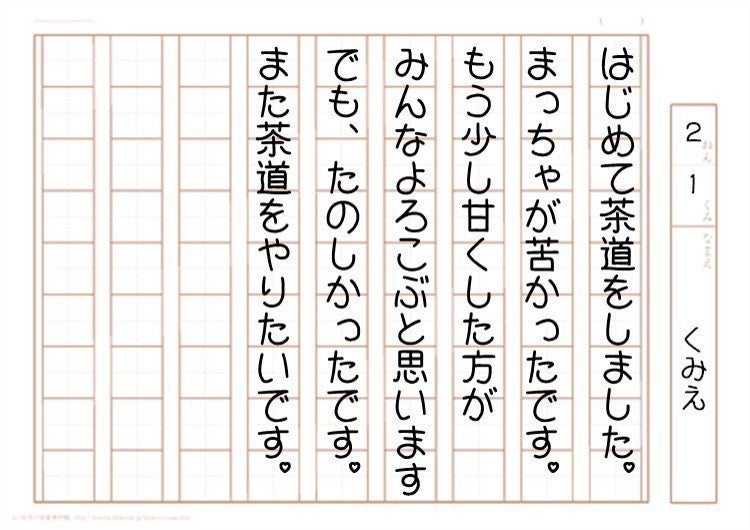 はじめて茶道をしました♥
まっちゃが苦かったです♥
もう少し甘くした方が
みんなよろこぶと思います
でも、たのしかったです♥
また茶道をやりたいです♥
2ねん
1くみ
なまえ
くみえ